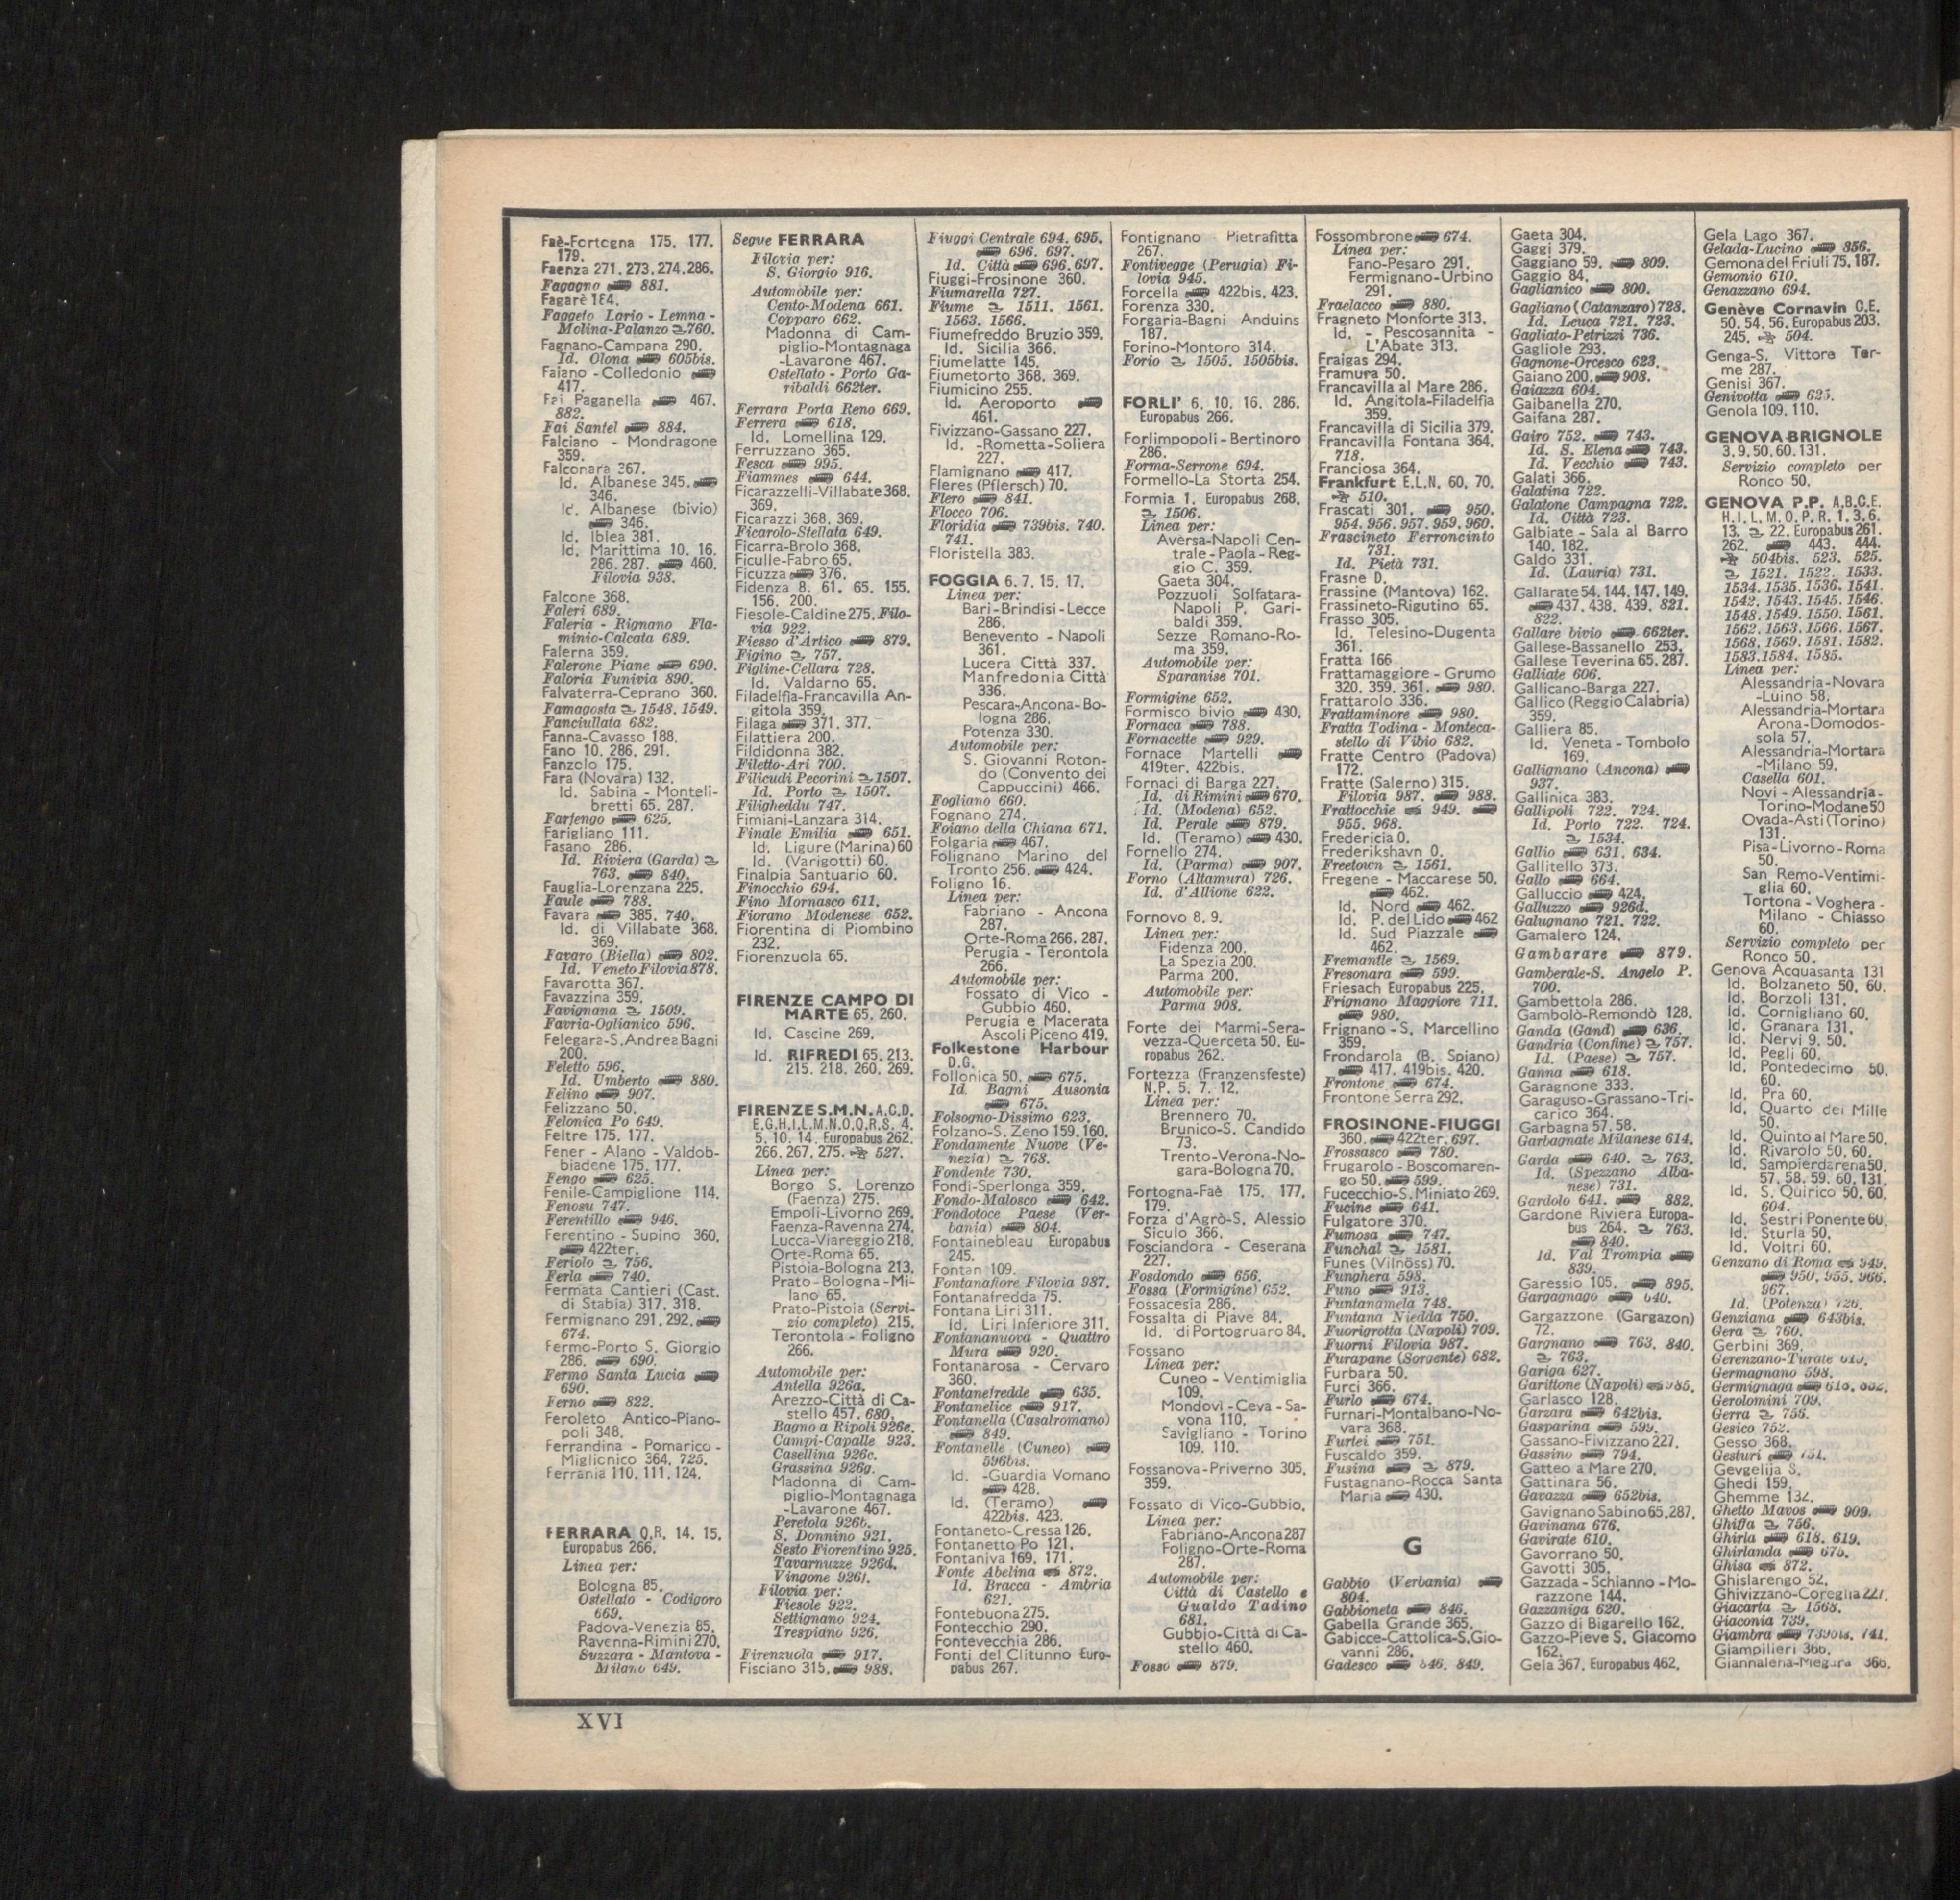 Faè-Fortogna 175. 177.
179.
Faenza 271. 273. 274. 286.
Fagagna 881.
Fagarè 184.
Faggeto Lario - Lemna -
Molina-Palanzo 760.
Fagnano-Campana 290.
Id. Olona 605bis.
Faiano - Colledonio
417.
Fai Paganella 467.
882.
Fai Santel 884.
Falciano - Mondragone
359.
Falconara 367.
Id. Albanese 345.
346.
Id. Albanese (bivio)
346.
Id. Iblea 381.
Id. Marittima 10. 16.
286. 287. 460.
Filovia 938.
Falcone 368.
Faleri 689.
Faleria - Rignano Fla-
minio-Calcata 689.
Falerna 359.
Falerone Piane 690.
Faloria Funivia 890.
Falvaterra-Ceprano 360.
Famagosta 1548. 1549.
Fanciullata 682.
Fanna-Cavasso 188.
Fano 10. 286. 291.
Fanzolo 175.
Fara (Novara) 132.
Id. Sabina - Monteli-
bretti 65. 287.
Farfengo 625.
Farigliano 111.
Fasano 286.
Id. Riviera (Garda)
763. 840.
Fauglia-Lorenzana 225.
Faule 788.
Favara 385. 740.
Id. di Villabate 368.
369.
Favaro (Biella) 802.
Id. Veneto Filovia 878.
Favarotta 367.
Favazzina 359.
Favignana 1509.
Favria-Oglianico 596.
Felegara-S. Andrea Bagni
200.
Feletto 596.
Id. Umberto 880.
Felino 907.
Felizzano 50.
Felonica Po 649.
Feltre 175. 177.
Fener - Alano - Valdob-
biadene 175. 177.
Fengo 625.
Fenile-Campiglione 114.
Fenosu 747.
Ferentillo 946.
Ferentino - Supino 360.
422ter.
Feriolo 756.
Ferla 740.
Fermata Cantieri (Cast.
di Stabia) 317. 318.
Fermignano 291. 292.
674.
Fermo-Porto S. Giorgio
286. 690.
Fermo Santa Lucia
690.
Ferno 822.
Feroleto Antico-Piano-
poli 348.
Ferrandina - Pomarico -
Miglionico 364. 725.
Ferrania 110. 111. 124.
FERRARA Q.R. 14. 15.
Europabus 266.
Linea per:
Bologna 85.
Ostellato - Codigoro
669.
Padova-Venezia 85.
Ravenna-Rimini 270.
Suzzara - Mantova -
Milano 649.
Segue FERRARA
Filovia per:
S. Giorgio 916.
Automobile per:
Cento-Modena 661.
Copparo 662.
Madonna di Cam-
piglio-Montagnaga
-Lavarone 467.
Ostellato - Porto Ga-
ribaldi 662ter.
Ferrara Porta Reno 669.
Ferrera 618.
Id. Lomellina 129.
Ferruzzano 365.
Fesca 995.
Fiammes 644.
Ficarazzelli-Villabate 368.
369.
Ficarazzi 368. 369.
Ficarolo-Stellata 649.
Ficarra-Brolo 368.
Ficulle-Fabro 65.
Ficuzza 376.
Fidenza 8. 61. 65. 155.
156. 200.
Fiesole-Caldine 275. Filo-
via 922.
Fiesso d'Artico 879.
Figino 757.
Figline-Cellara 728.
Id. Valdarno 65.
Filadelfia-Francavilla An-
gitola 359.
Filaga 371. 377.
Filattiera 200.
Fildidonna 382.
Filetto-Ari 700.
Filicudi Pecorini 1507.
Id. Porto 1507.
Filigheddu 747.
Fimiani-Lanzara 314.
Finale Emilia 651.
Id. Ligure (Marina) 60
Id. (Varigotti) 60.
Finalpia Santuario 60.
Finocchio 694.
Fino Mornasco 611.
Fiorano Modenese 652.
Fiorentina di Piombino
232.
Fiorenzuola 65.
FIRENZE CAMPO DI
MARTE 65. 260.
Id. Cascine 269.
Id. RIFREDI 65. 213.
215. 218. 260. 269.
FIRENZE S.M.N. A.C.D.
E.G.H.I.L.M.N.O.Q.R.S. 4.
5. 10. 14. Europabus 262.
266. 267. 275. 527.
Linea per:
Borgo S. Lorenzo
(Faenza) 275.
Empoli-Livorno 269.
Faenza-Ravenna 274.
Lucca-Viareggio 218.
Orte-Roma 65.
Pistoia-Bologna 213.
Prato-Bologna-Mi-
lano 65.
Prato-Pistoia (Servi-
zio completo) 215.
Terontola - Foligno
266.
Automobile per:
Antella 926a.
Arezzo-Città di Ca-
stello 457. 680.
Bagno a Ripoli 926e.
Campi-Capalle 923.
Casellina 926c.
Grassina 926g.
Madonna di Cam-
piglio-Montagnaga
-Lavarone 467.
Peretola 926b.
S. Donnino 921.
Sesto Fiorentino 925.
Tavarnuzze 926d.
Vingone 926f.
Filovia per:
Fiesole 922.
Settignano 924.
Trespiano 926.
Firenzuola 917.
Fisciano 315. 988.
Fiuggi Centrale 694. 695.
696. 697.
Id. Città 696. 697.
Fiuggi-Frosinone 360.
Fiumarella 727.
Fiume 1511. 1561.
1563. 1566.
Fiumefreddo Bruzio 359.
Id. Sicilia 366.
Fiumelatte 145.
Fiumetorto 368. 369.
Fiumicino 255.
Id. Aeroporto
461.
Fivizzano-Gassano 227.
Id. -Rometta-Soliera
227.
Flamignano 417.
Fleres (Pflersch) 70.
Flero 841.
Flocco 706.
Floridia 739bis. 740.
741.
Floristella 383.
FOGGIA 6. 7. 15. 17.
Linea per:
Bari-Brindisi-Lecce
286.
Benevento - Napoli
361.
Lucera Città 337.
Manfredonia Città
336.
Pescara-Ancona-Bo-
logna 286.
Potenza 330.
Automobile per:
S. Giovanni Roton-
do (Convento dei
Cappuccini) 466.
Fogliano 660.
Fognano 274.
Foiano della Chiana 671.
Folgaria 467.
Folignano Marino del
Tronto 256. 424.
Foligno 16.
Linea per:
Fabriano - Ancona
287.
Orte-Roma 266. 287.
Perugia - Terontola
266.
Automobile per:
Fossato di Vico -
Gubbio 460.
Perugia e Macerata
Ascoli Piceno 419.
Folkestone Harbour
D.G.
Follonica 50. 675.
Id. Bagni Ausonia
675.
Folsogno-Dissimo 623.
Folzano-S. Zeno 159. 160.
Fondamente Nuove (Ve-
nezia) 768.
Fondente 730.
Fondi-Sperlonga 359.
Fondo-Malosco 642.
Fondotoce Paese (Ver-
bania) 804.
Fontainebleau Europabus
245.
Fontan 109.
Fontanafiore Filovia 987.
Fontanafredda 75.
Fontana Liri 311.
Id. Liri Inferiore 311.
Fontananuova - Quattro
Mura 920.
Fontanarosa - Cervaro
360.
Fontanefredde 635.
Fontanelice 917.
Fontanella (Casalromano)
849.
Fontanelle (Cuneo)
596bis.
Id. -Guardia Vomano
428.
Id. (Teramo)
422bis. 423.
Fontaneto-Cressa 126.
Fontanetto Po 121.
Fontaniva 169. 171.
Fonte Abelina 872.
Id. Bracca - Ambria
621.
Fontebuona 275.
Fontecchio 290.
Fontevecchia 286.
Fonti del Clitunno Euro-
pabus 267.
Fontignano - Pietrafitta
267.
Fontivegge (Perugia) Fi-
lovia 945.
Forcella 422bis. 423.
Forenza 330.
Forgaria-Bagni Anduins
187.
Forino-Montoro 314.
Forio 1505. 1505bis.
FORLI' 6. 10. 16. 286.
Europabus 266.
Forlimpopoli - Bertinoro
286.
Forma-Serrone 694.
Formello-La Storta 254.
Formia 1. Europabus 268.
1506.
Linea per:
Aversa-Napoli Cen-
trale - Paola - Reg-
gio C. 359.
Gaeta 304.
Pozzuoli Solfatara-
Napoli P. Gari-
baldi 359.
Sezze Romano-Ro-
ma 359.
Automobile per:
Sparanise 701.
Formigine 652.
Formisco bivio 430.
Fornaca 788.
Fornacette 929.
Fornace Martelli
419ter. 422bis.
Fornaci di Barga 227.
Id. di Rimini 670.
Id. (Modena) 652.
Id. Perale 879.
Id. (Teramo) 430.
Fornello 274.
Id. (Parma) 907.
Forno (Altamura) 726.
Id. d'Allione 622.
Fornovo 8. 9.
Linea per:
Fidenza 200.
La Spezia 200.
Parma 200.
Automobile per:
Parma 908.
Forte dei Marmi-Sera-
vezza-Querceta 50. Eu-
ropabus 262.
Fortezza (Franzensfeste)
N.P. 5. 7. 12.
Linea per:
Brennero 70.
Brunico-S. Candido
73.
Trento-Verona-No-
gara-Bologna 70.
Fortogna-Faè 175. 177.
179.
Forza d'Agrò-S. Alessio
Siculo 366.
Fosciandora - Ceserana
227.
Fosdondo 656.
Fossa (Formigine) 652.
Fossacesia 286.
Fossalta di Piave 84.
Id. di Portogruaro 84.
Fossano
Linea per:
Cuneo - Ventimiglia
109.
Mondovì - Ceva - Sa-
vona 110.
Savigliano - Torino
109. 110.
Fossanova-Priverno 305.
359.
Fossato di Vico-Gubbio.
Linea per:
Fabriano-Ancona 287
Foligno-Orte-Roma
287.
Automobile per:
Città di Castello e
Gualdo Tadino
681.
Gubbio-Città di Ca-
stello 460.
Fosso 879.
Fossombrone 674.
Linea per:
Fano-Pesaro 291.
Fermignano-Urbino
291.
Fraelacco 880.
Fragneto Monforte 313.
Id. - Pescosannita -
L'Abate 313.
Fraigas 294.
Framura 50.
Francavilla al Mare 286.
Id. Angitola-Filadelfia
359.
Francavilla di Sicilia 379.
Francavilla Fontana 364.
718.
Franciosa 364.
Frankfurt E.L.N. 60. 70.
510.
Frascati 301. 950.
954. 956. 957. 959. 960.
Frascineto Ferroncinto
731.
Id. Pietà 731.
Frasne D.
Frassine (Mantova) 162.
Frassineto-Rigutino 65.
Frasso 305.
Id. Telesino-Dugenta
361.
Fratta 166
Frattamaggiore - Grumo
320. 359. 361. 980.
Frattarolo 336.
Frattaminore 980.
Fratta Todina - Monteca-
stello di Vibio 682.
Fratte Centro (Padova)
172.
Fratte (Salerno) 315.
Filovia 987. 988.
Frattocchie 949.
955. 968.
Fredericia O.
Frederikshavn O.
Freetown 1561.
Fregene - Maccarese 50.
462.
Id. Nord 462.
Id. P. del Lido 462
Id. Sud Piazzale
462.
Fremantle 1569.
Fresonara 599.
Friesach Europabus 225.
Frignano Maggiore 711.
980.
Frignano - S. Marcellino
359.
Frondarola (B. Spiano)
417. 419bis. 420.
Frontone 674.
Frontone Serra 292.
FROSINONE-FIUGGI
360. 422ter. 697.
Frossasco 780.
Frugarolo - Boscomaren-
go 50. 599.
Fucecchio-S. Miniato 269.
Fucine 641.
Fulgatore 370.
Fumosa 747.
Funchal 1581.
Funes (Vilnöss) 70.
Funghera 598.
Funo 913.
Funtanamela 748.
Funtana Niedda 750.
Fuorigrotta (Napoli) 709.
Fuorni Filovia 987.
Furapane (Sorgente) 682.
Furbara 50.
Furci 366.
Furlo 674.
Furnari-Montalbano-No-
vara 368.
Furtei 751.
Fuscaldo 359.
Fusina 879.
Fustagnano-Rocca Santa
Maria 430.
G
Gabbio (Verbania)
804.
Gabbioneta 846.
Gabella Grande 365.
Gabicce-Cattolica-S. Gio-
vanni 286.
Gadesco 846. 849.
Gaeta 304.
Gaggi 379.
Gaggiano 59. 809.
Gaggio 84.
Gaglianico 800.
Gagliano (Catanzaro) 728.
Id. Leuca 721. 723.
Gagliato-Petrizzi 736.
Gagliole 293.
Gagnone-Orcesco 623.
Gaiano 200. 908.
Gaiazza 604.
Gaibanella 270.
Gaifana 287.
Gairo 752. 743.
Id. S. Elena 743.
Id. Vecchio 743.
Galati 366.
Galatina 722.
Galatone Campagna 722.
Id. Città 723.
Galbiate - Sala al Barro
140. 182.
Galdo 331.
Id. (Lauria) 731.
Gallarate 54. 144. 147. 149.
437. 438. 439. 821.
822.
Gallare bivio 662ter.
Gallese-Bassanello 253.
Gallese Teverina 65. 287.
Galliate 606.
Gallicano-Barga 227.
Gallico (Reggio Calabria)
359.
Galliera 85.
Id. Veneta - Tombolo
169.
Gallignano (Ancona)
937.
Gallinica 383.
Gallipoli 722. 724.
Id. Porto 722. 724.
1534.
Gallio 631. 634.
Gallitello 373.
Gallo 664.
Galluccio 424.
Galluzzo 926d.
Galugnano 721. 722.
Gamalero 124.
Gambarare 879.
Gamberale-S. Angelo P.
700.
Gambettola 286.
Gambolò-Remondò 128.
Ganda (Gand) 636.
Gandria (Confine) 757.
Id. (Paese) 757.
Ganna 618.
Garagnone 333.
Garaguso-Grassano-Tri-
carico 364.
Garbagna 57. 58.
Garbagnate Milanese 614.
Garda 640. 763.
Id. (Spezzano Alba-
nese) 731.
Gardolo 641. 882.
Gardone Riviera Europa-
bus 264. 763.
840.
Id. Val Trompia
839.
Garessio 105. 895.
Gargagnago 640.
Gargazzone (Gargazon)
72.
Gargnano 763. 840.
763.
Gariga 627.
Garittone (Napoli) 985.
Garlasco 128.
Garzara 642bis.
Gasparina 599.
Gassano-Fivizzano 227.
Gassino 794.
Gatteo a Mare 270.
Gattinara 56.
Gavazza 652bis.
Gavignano Sabino 65. 287.
Gavinana 676.
Gavirate 610.
Gavorrano 50.
Gavotti 305.
Gazzada - Schianno - Mo-
razzone 144.
Gazzaniga 620.
Gazzo di Bigarello 162.
Gazzo-Pieve S. Giacomo
162.
Gela 367. Europabus 462.
Gela Lago 367.
Gelada-Lucino 856.
Gemona del Friuli 75. 187.
Gemonio 610.
Genazzano 694.
Genève Cornavin C.E.
50. 54. 56. Europabus 203.
245. 504.
Genga-S. Vittore Ter-
me 287.
Genisi 367.
Genivotta 625.
Genola 109. 110.
GENOVA BRIGNOLE
3. 9. 50. 60. 131.
Servizio completo per
Ronco 50.
GENOVA P.P. A.B.C.E.
H.I.L.M.O.P.R. 1. 3. 6.
13. 22. Europabus 261.
262. 443. 444.
504bis. 523. 525.
1521. 1522. 1533.
1534. 1535. 1536. 1541.
1542. 1543. 1545. 1546.
1548. 1549. 1550. 1561.
1562. 1563. 1566. 1567.
1568. 1569. 1581. 1582.
1583. 1584. 1585.
Linea per:
Alessandria-Novara
-Luino 58.
Alessandria-Mortara
Arona-Domodos-
sola 57.
Alessandria-Mortara
-Milano 59.
Casella 601.
Novi - Alessandria -
Torino-Modane 50
Ovada-Asti (Torino)
131.
Pisa-Livorno-Roma
50.
San Remo-Ventimi-
glia 60.
Tortona - Voghera -
Milano - Chiasso
60.
Servizio completo per
Ronco 50.
Genova Acquasanta 131
Id. Bolzaneto 50. 60.
Id. Borzoli 131.
Id. Cornigliano 60.
Id. Granara 131.
Id. Nervi 9. 50.
Id. Pegli 60.
Id. Pontedecimo 50.
60.
Id. Pra 60.
Id. Quarto dei Mille
50.
Id. Quinto al Mare 50.
Id. Rivarolo 50. 60.
Id. Sampierdarena 50.
57. 58. 59. 60. 131.
Id. S. Quirico 50. 60.
604.
Id. Sestri Ponente 60.
Id. Sturla 50.
Id. Voltri 60.
Genzano di Roma 949.
950. 955. 966.
967.
Id. (Potenza) 726.
Genziana 643bis.
Gera 760.
Gerbini 369.
Gerenzano-Turate 615.
Germagnano 598.
Germignaga
Gerolomini 709.
Gerra 758.
Gesico 752.
Gesso 368.
Gesturi 751.
Gevgelija S.
Ghedi 159.
Ghemme 132.
Ghetto Mavos 909.
Ghiffa 756.
Ghirla 618. 619.
Ghirlanda 675.
Ghisa 872.
Ghislarengo 52.
Ghivizzano-Coreglia 227.
Giacarta 1568.
Giaconia 739.
Giambra 739bis. 741.
Giampilieri 366.
Giannalena-Megara 366.
XVI